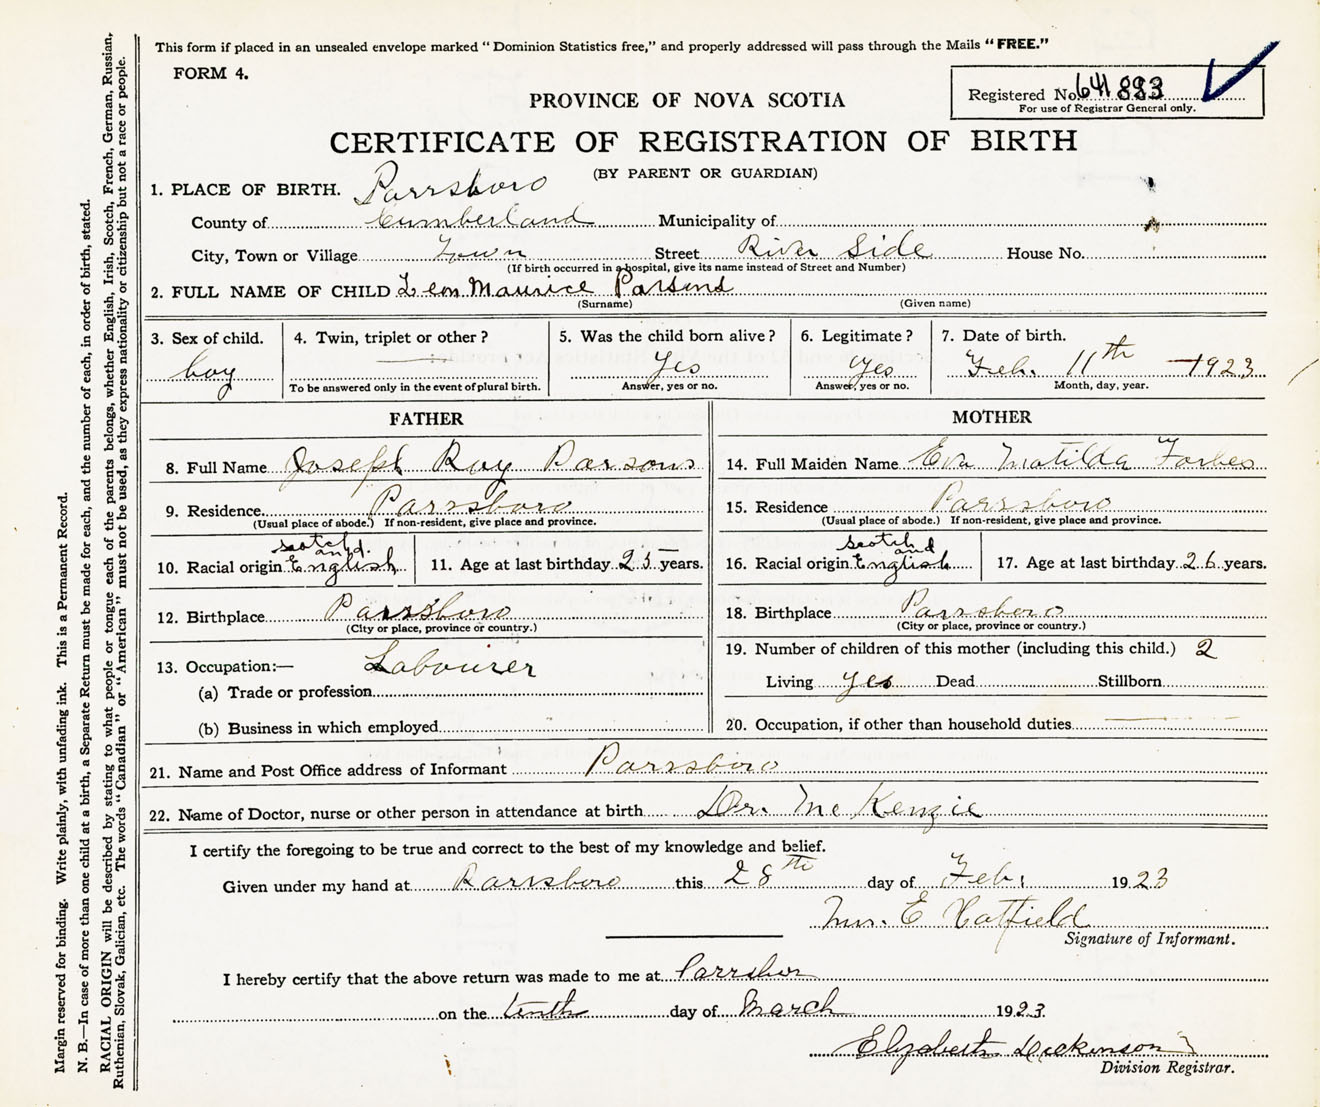 This form if placed in an unsealed envelope marked "Dominion Statistics free," and properly addressed will pass through the Mails "FREE."
FORM 4.
Registered No. 641 883
For use of Registrar General only.
PROVINCE OF NOVA SCOTIA
CERTIFICATE OF REGISTRATION OF BIRTH
(BY PARENT OR GUARDIAN)
1. PLACE OF BIRTH. Parrsboro
County of Cumberland Municipality of
City, Town or Village Town Street River Side House No.
(If birth occurred in a hospital, give its name instead of Street and Number)
2. FULL NAME OF CHILD Leon Maurice Parsons
(Surname) (Given name)
3. Sex of child. 4. Twin, triplet or other? 5. Was the child born alive? 6. Legitimate? 7. Date of birth.
boy — Yes Yes Feb. 11th 1923
To be answered only in the event of plural birth. Answer, yes or no. Answer, yes or no. Month, day, year.
FATHER
8. Full Name Joseph Roy Parsons
9. Residence. Parrsboro
(Usual place of abode.) If non-resident, give place and province.
10. Racial origin scotch and English 11. Age at last birthday 25 years.
12. Birthplace Parrsboro
(City or place, province or country.)
13. Occupation:— Labourer
(a) Trade or profession
(b) Business in which employed
MOTHER
14. Full Maiden Name Eva Matilda Forbes
15. Residence Parrsboro
(Usual place of abode.) If non-resident, give place and province.
16. Racial origin scotch and English 17. Age at last birthday 26 years.
18. Birthplace Parrsboro
(City or place, province or country.)
19. Number of children of this mother (including this child.) 2
Living yes Dead Stillborn
20. Occupation, if other than household duties —
21. Name and Post Office address of Informant Parrsboro
22. Name of Doctor, nurse or other person in attendance at birth Dr. McKenzie
I certify the foregoing to be true and correct to the best of my knowledge and belief.
Given under my hand at Parrsboro this 28th day of Feb. 1923
Mrs. E Hatfield
Signature of Informant.
I hereby certify that the above return was made to me at Parrsboro
on the tenth day of March 1923
Elizabeth Dickinson
Division Registrar.
Margin reserved for binding. Write plainly, with unfading ink. This is a Permanent Record.
N. B.—In case of more than one child at a birth, a Separate Return must be made for each, and the number of each, in order of birth, stated.
RACIAL ORIGIN will be described by stating to what people or tongue each of the parents belongs, whether English, Irish, Scotch, French, German, Russian,
Ruthenian, Slovak, Galician, etc. The words "Canadian" or "American" must not be used, as they express nationality or citizenship but not a race or people.